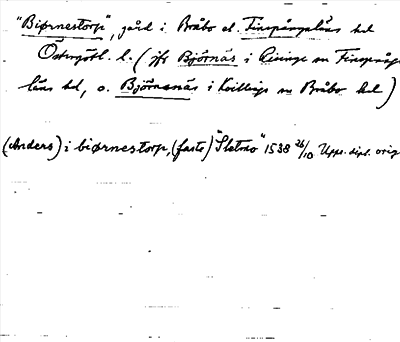 "Biørnestorp", gård i Bråbo el. Finspångaläns hd
Östergötl. l. (jfr Björnäs i Risinge sn Finspånga
läns hd, o. Björnsnäs i Kvillinge sn Bråbo hd)
(Anders) i biørnestorp, (faste) "Sletmo" 1538 26/10 Upps. dipl. orig